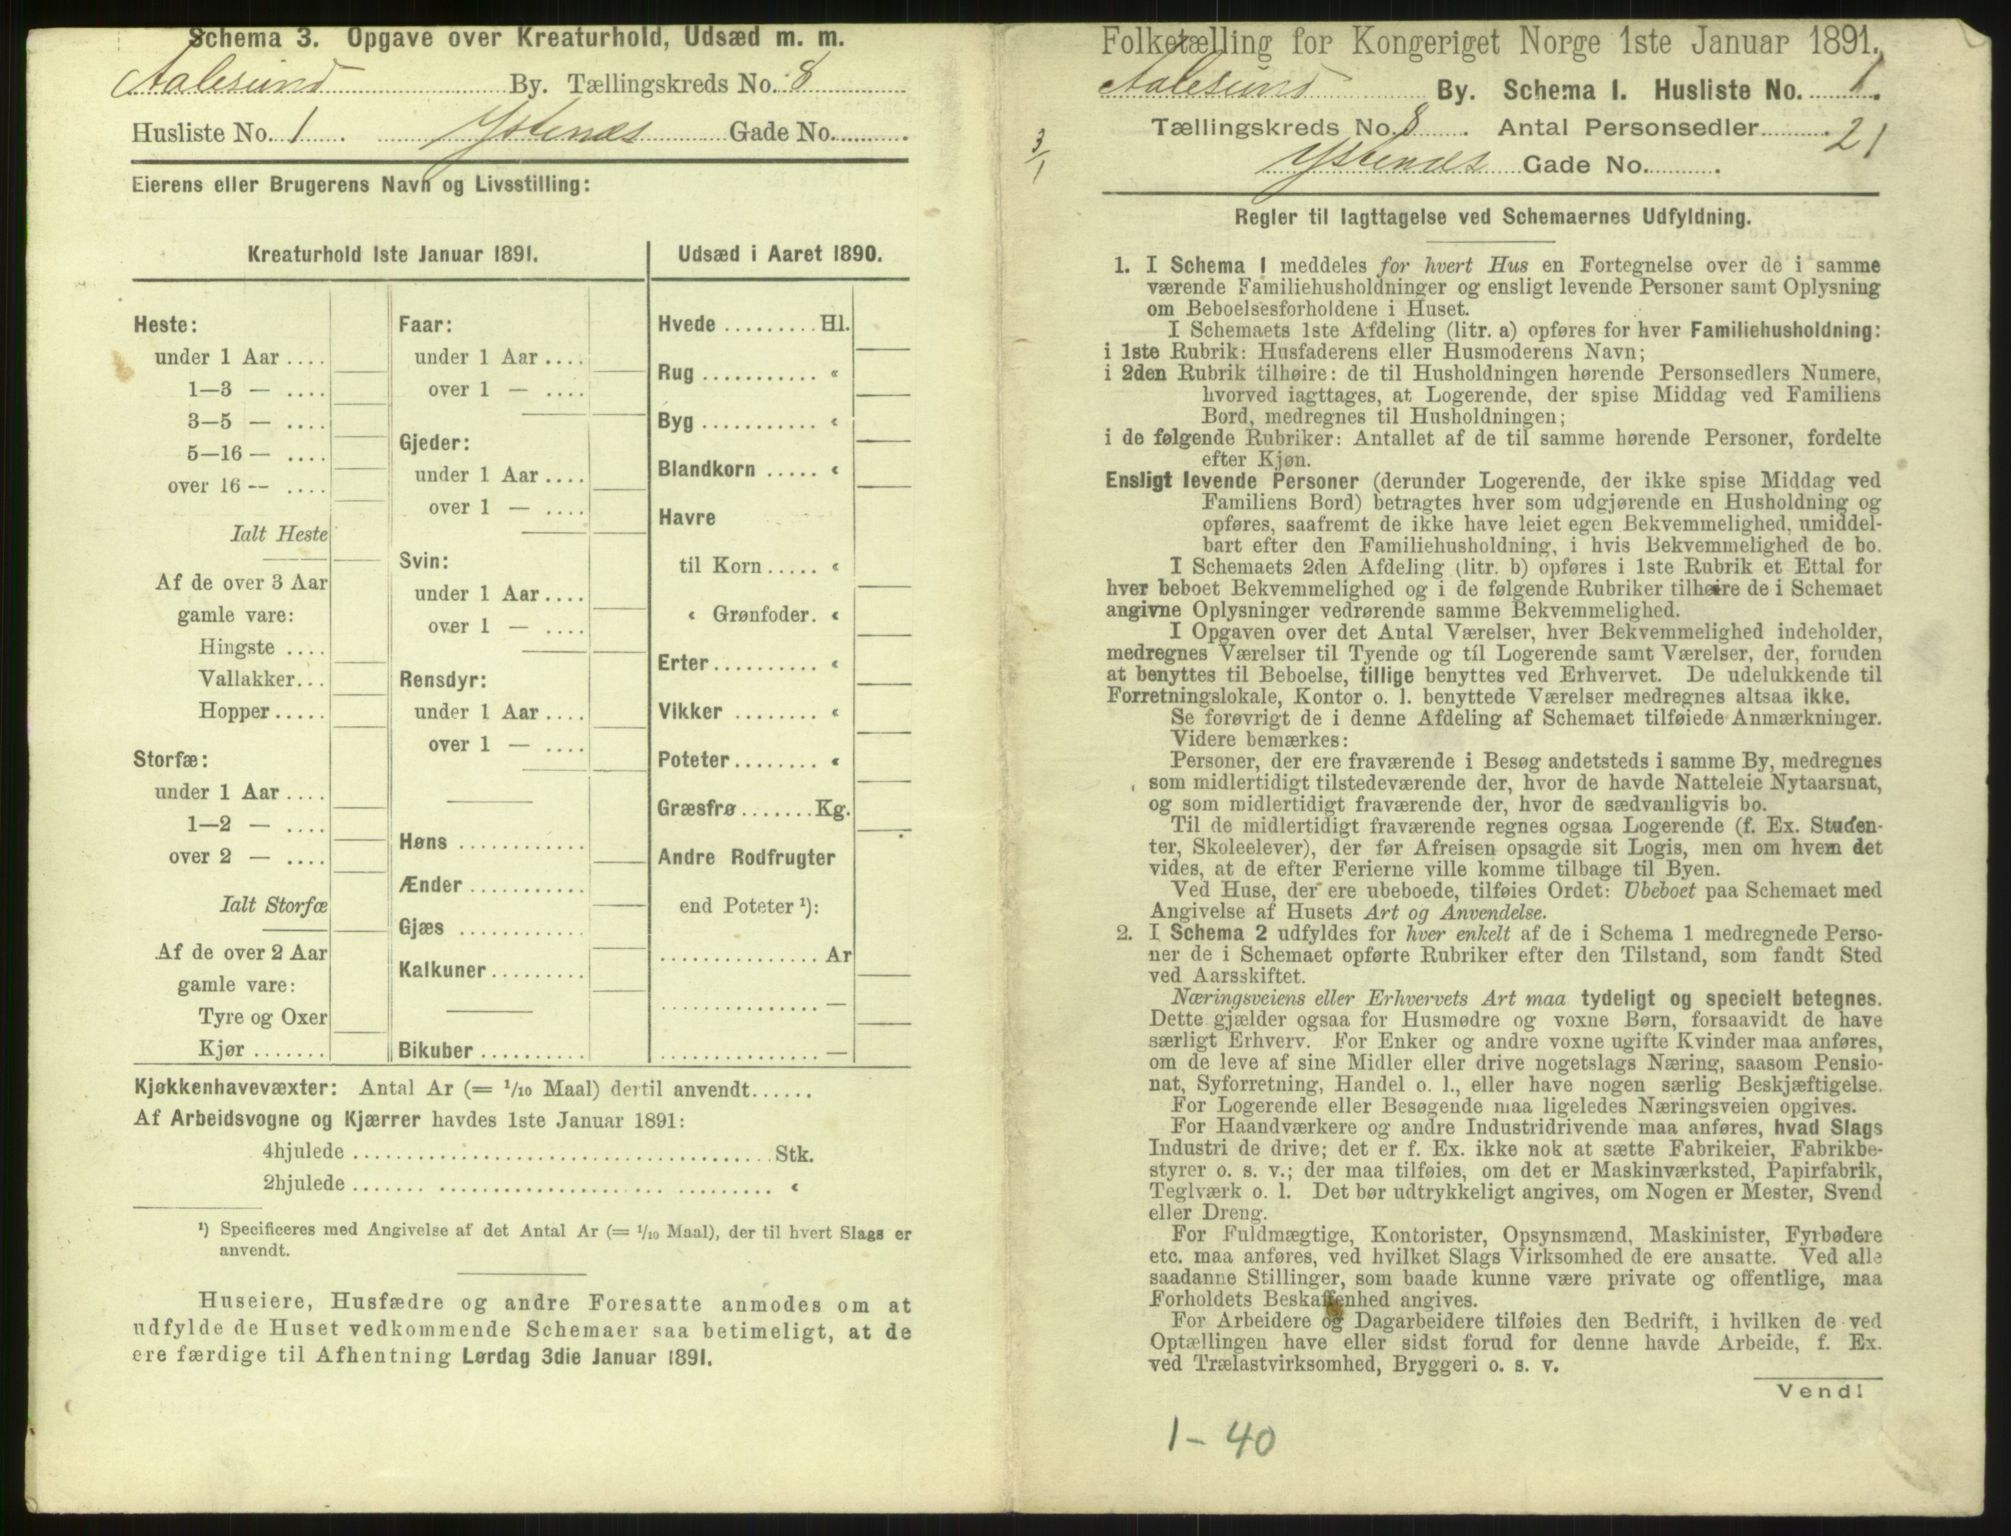 Schema 3. Opgave over Kreaturhold, Udsæd m. m.
Aalesund By. Tællingskreds No. 8
Husliste No. 1. Ystenæs Gade No.
Eierens eller Brugerens Navn og Livsstilling:
Kreaturhold 1ste Januar 1891.
Heste:
under 1 Aar ....
1—3 — ....
3—5 — ....
5—16 — ....
over 16 — ....
Ialt Heste
Af de over 3 Aar
gamle vare:
Hingste ....
Vallakker...
Hopper.....
Storfæ:
under 1 Aar ....
1—2 — ....
over 2 — ....
Ialt Storfæ
Af de over 2 Aar
gamle vare:
Tyre og Oxer
Kjør .......
Faar:
under 1 Aar ....
over 1 — ....
Gjeder:
under 1 Aar ....
over 1 — ....
Svin:
under 1 Aar ....
over 1 — ....
Rensdyr:
under 1 Aar ....
over 1 — ....
Høns ............
Ænder ...........
Gjæs ............
Kalkuner.........
Bikuber ..........
Udsæd i Aaret 1890.
Hvede ......... Hl.
Rug ........... «
Byg ........... «
Blandkorn ..... «
Havre
til Korn ..... «
« Grønfoder. «
Erter.......... «
Vikker ........ «
Poteter........ «
Græsfrø ....... Kg.
Andre Rodfrugter
end Poteter ¹):
............... Ar
............... —
............... —
Kjøkkenhavevæxter: Antal Ar (= 1/10 Maal) dertil anvendt......
Af Arbeidsvogne og Kjærrer havdes 1ste Januar 1891:
4hjulede ....................................... Stk.
2hjulede ....................................... «
¹) Specificeres med Angivelse af det Antal Ar (= 1/10 Maal), der til hvert Slags er
anvendt.
Huseiere, Husfædre og andre Foresatte anmodes om at
udfylde de Huset vedkommende Schemaer saa betimeligt, at de
ere færdige til Afhentning Lørdag 3die Januar 1891.
Folketælling for Kongeriget Norge 1ste Januar 1891.
Aalesund By. Schema 1. Husliste No. 1.
Tællingskreds No. 8. Antal Personsedler 21
3/1
Ystenæs Gade No.
Regler til Iagttagelse ved Schemaernes Udfyldning.
1. I Schema 1 meddeles for hvert Hus en Fortegnelse over de i samme
værende Familiehusholdninger og ensligt levende Personer samt Oplysning
om Beboelsesforholdene i Huset.
I Schemaets 1ste Afdeling (litr. a) opføres for hver Familiehusholdning:
i 1ste Rubrik: Husfaderens eller Husmoderens Navn;
i 2den Rubrik tilhøire: de til Husholdningen hørende Personsedlers Numere,
hvorved iagttages, at Logerende, der spise Middag ved Familiens
Bord, medregnes til Husholdningen;
i de følgende Rubriker: Antallet af de til samme hørende Personer, fordelte
efter Kjøn.
Ensligt levende Personer (derunder Logerende, der ikke spise Middag ved
Familiens Bord) betragtes hver som udgjørende en Husholdning og
opføres, saafremt de ikke have leiet egen Bekvemmelighed, umiddel-
bart efter den Familiehusholdning, i hvis Bekvemmelighed de bo.
I Schemaets 2den Afdeling (litr. b) opføres i 1ste Rubrik et Ettal for
hver beboet Bekvemmelighed og i de følgende Rubriker tilhøire de i Schemaet
angivne Oplysninger vedrørende samme Bekvemmelighed.
I Opgaven over det Antal Værelser, hver Bekvemmelighed indeholder,
medregnes Værelser til Tyende og til Logerende samt Værelser, der, foruden
at benyttes til Beboelse, tillige benyttes ved Erhvervet. De udelukkende til
Forretningslokale, Kontor o. l. benyttede Værelser medregnes altsaa ikke.
Se forøvrigt de i denne Afdeling af Schemaet tilføiede Anmærkninger.
Videre bemærkes:
Personer, der ere fraværende i Besøg andetsteds i samme By, medregnes
som midlertidigt tilstedeværende der, hvor de havde Natteleie Nytaarsnat,
og som midlertidigt fraværende der, hvor de sædvanligvis bo.
Til de midlertidigt fraværende regnes ogsaa Logerende (f. Ex. Studen-
ter, Skoleelever), der før Afreisen opsagde sit Logis, men om hvem det
vides, at de efter Ferierne ville komme tilbage til Byen.
Ved Huse, der ere ubeboede, tilføies Ordet: Ubeboet paa Schemaet med
Angivelse af Husets Art og Anvendelse.
2. I Schema 2 udfyldes for hver enkelt af de i Schema 1 medregnede Perso-
ner de i Schemaet opførte Rubriker efter den Tilstand, som fandt Sted
ved Aarsskiftet.
Næringsveiens eller Erhvervets Art maa tydeligt og specielt betegnes.
Dette gjælder ogsaa for Husmødre og voxne Børn, forsaavidt de have
særligt Erhverv. For Enker og andre voxne ugifte Kvinder maa anføres,
om de leve af sine Midler eller drive nogetslags Næring, saasom Pensio-
nat, Syforretning, Handel o. l., eller have nogen særlig Beskjæftigelse.
For Logerende eller Besøgende maa ligeledes Næringsveien opgives.
For Haandværkere og andre Industridrivende maa anføres, hvad Slags
Industri de drive; det er f. Ex. ikke nok at sætte Fabrikeier, Fabrikbe-
styrer o. s. v.; der maa tilføies, om det er Maskinværksted, Papirfabrik,
Teglværk o. l. Det bør udtrykkeligt angives, om Nogen er Mester, Svend
eller Dreng.
For Fuldmægtige, Kontorister, Opsynsmænd, Maskinister, Fyrbødere
etc. maa anføres, ved hvilket Slags Virksomhed de ere ansatte. Ved alle
saadanne Stillinger, som baade kunne være private og offentlige, maa
Forholdets Beskaffenhed angives.
For Arbeidere og Dagarbeidere tilføies den Bedrift, i hvilken de ved
Optællingen have eller sidst forud for denne havde Arbeide, f. Ex.
ved Trælastvirksomhed, Bryggeri o. s. v.
Vend!
1-40